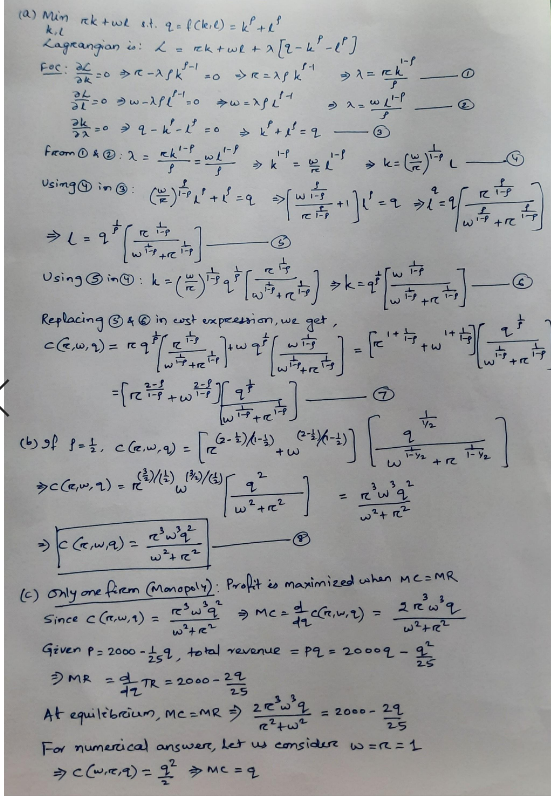 (a) Min rk+wl s.t. q = f(k,l) = k^ρ + l^ρ
k,l
Lagrangian is: L = rk+wl + λ[q - k^ρ - l^ρ]
FOC: ∂L/∂k = 0 ⇒ r - λρk^(ρ-1) = 0 ⇒ r = λρk^(ρ-1) ⇒ λ = rk^(1-ρ)/ρ — ①
∂L/∂l = 0 ⇒ w - λρl^(ρ-1) = 0 ⇒ w = λρl^(ρ-1) ⇒ λ = wl^(1-ρ)/ρ — ②
∂k/∂λ = 0 ⇒ q - k^ρ - l^ρ = 0 ⇒ k^ρ + l^ρ = q — ③
From ① & ②: λ = rk^(1-ρ)/ρ = wl^(1-ρ)/ρ ⇒ k^(1-ρ) = (w/r) l^(1-ρ) ⇒ k = (w/r)^(1/(1-ρ)) l — ④
Using ④ in ③: (w/r)^(ρ/(1-ρ)) l^ρ + l^ρ = q ⇒ [w^(ρ/(1-ρ))/r^(ρ/(1-ρ)) + 1] l^ρ = q ⇒ l^q = q[r^(ρ/(1-ρ))/(w^(ρ/(1-ρ)) + r^(ρ/(1-ρ)))]
⇒ l = q^(1/ρ) [r^(1/(1-ρ))/(w^(1/(1-ρ)) + r^(1/(1-ρ)))] — ⑤
Using ⑤ in ④: k = (w/r)^(1/(1-ρ)) q^(1/ρ) [r^(1/(1-ρ))/(w^(1/(1-ρ)) + r^(1/(1-ρ)))] ⇒ k = q^(1/ρ) [w^(1/(1-ρ))/(w^(1/(1-ρ)) + r^(1/(1-ρ)))] — ⑥
Replacing ⑤ & ⑥ in cost expression, we get,
C(r,w,q) = r q^(1/ρ) [r^(1/(1-ρ))/(w^(1/(1-ρ)) + r^(1/(1-ρ)))] + w q^(1/ρ) [w^(1/(1-ρ))/(w^(1/(1-ρ)) + r^(1/(1-ρ)))] = [r^(1+1/(1-ρ)) + w^(1+1/(1-ρ))] [q^(1/ρ)/(w^(1/(1-ρ)) + r^(1/(1-ρ)))]
= [r^((2-ρ)/(1-ρ)) + w^((2-ρ)/(1-ρ))] [q^(1/ρ)/(w^(1/(1-ρ)) + r^(1/(1-ρ)))] — ⑦
(b) If ρ = 1/2, C(r,w,q) = [r^((2-1/2)/(1-1/2)) + w^((2-1/2)/(1-1/2))] [q^(1/(1/2))/(w^(1/(1-1/2)) + r^(1/(1-1/2)))]
⇒ C(r,w,q) = r^((3/2)/(1/2)) w^((3/2)/(1/2)) [q²/(w²+r²)] = r³w³q²/(w²+r²)
⇒ C(r,w,q) = r³w³q²/(w²+r²) — ⑧
(c) Only one firm (Monopoly): Profit is maximized when MC=MR
Since C(r,w,q) = r³w³q²/(w²+r²) ⇒ MC = d/dq C(r,w,q) = 2r³w³q/(w²+r²)
Given P = 2000 - (1/25)q, total revenue = Pq = 2000q - q²/25
⇒ MR = d/dq TR = 2000 - 2q/25
At equilibrium, MC=MR ⇒ 2r³w³q/(r²+w²) = 2000 - 2q/25
For numerical answer, let us consider w=r=1
⇒ C(w,r,q) = q²/2 ⇒ MC = q